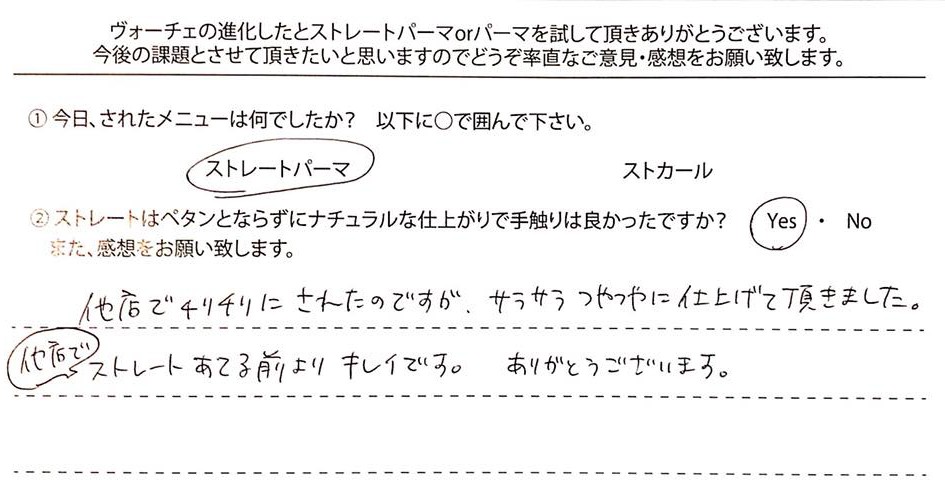 ヴォーチェの進化したとストレートパーマorパーマを試して頂きありがとうございます。
今後の課題とさせて頂きたいと思いますのでどうぞ率直なご意見・感想をお願い致します。
① 今日、されたメニューは何でしたか？ 以下に○で囲んで下さい。
ストレートパーマ ストカール
② ストレートはペタンとならずにナチュラルな仕上がりで手触りは良かったですか？ Yes ・ No
また、感想をお願い致します。
他店でチリチリにされたのですが、サラサラつやつやに仕上げて頂きました。
他店でストレートあてる前よりキレイです。 ありがとうございます。